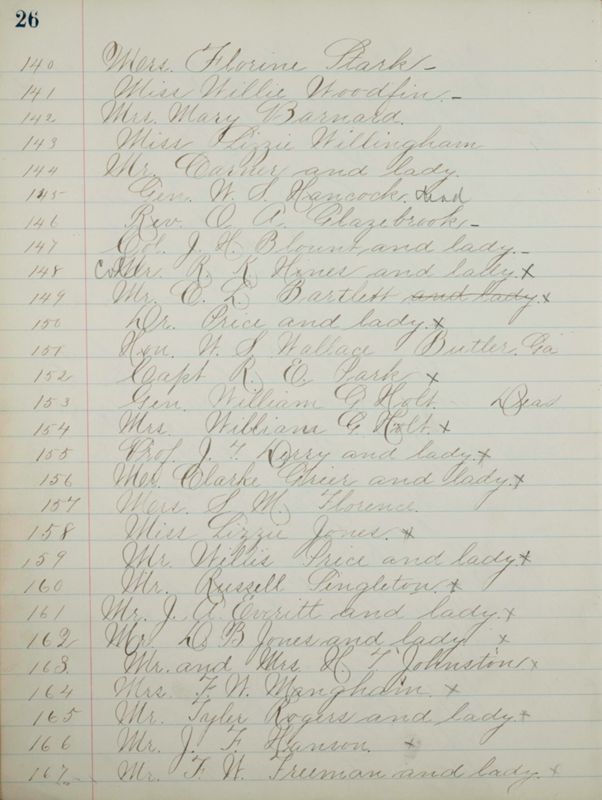 26
140 Mrs. Florine Stark -
141 Miss Willie Woodfin. -
142 Mrs. Mary Barnard.
143 Miss Lizzie Willingham
144 Mr. Carner and lady.
145 Gen. W. S. Hancock. Dead
146 Rev. O. A. Glazebrook -
147 Col. J. H. Blount and lady. -
148 Col Mr. R. K. Hines and lady x
149 Mr. E. L. Bartlett and lady. x
150 Dr. Price and lady. x
151 Hon. W. S. Wallace Butler, Ga
152 Capt R. E. Park x
153 Gen. William G. Holt. Dead
154 Mrs. William G. Holt. x
155 Prof. J. T. Derry and lady x
156 Mr. Clarke Grier and lady. x
157 Mrs. S. M. Florence.
158 Miss Lizzie Jones. x
159 Mr. Willis Price and lady x
160 Mr. Russell Singleton. x
161 Mr. J. A. Everitt and lady. x
162 Mr. D. B Jones and lady x
163 Mr. and Mrs. H. T. Johnston x
164 Mrs. F. W. Mangham. x
165 Mr. Tyler Rogers and lady x
166 Mr. J. F. Hanson. x
167 Mr. F. W. Freeman and lady. x